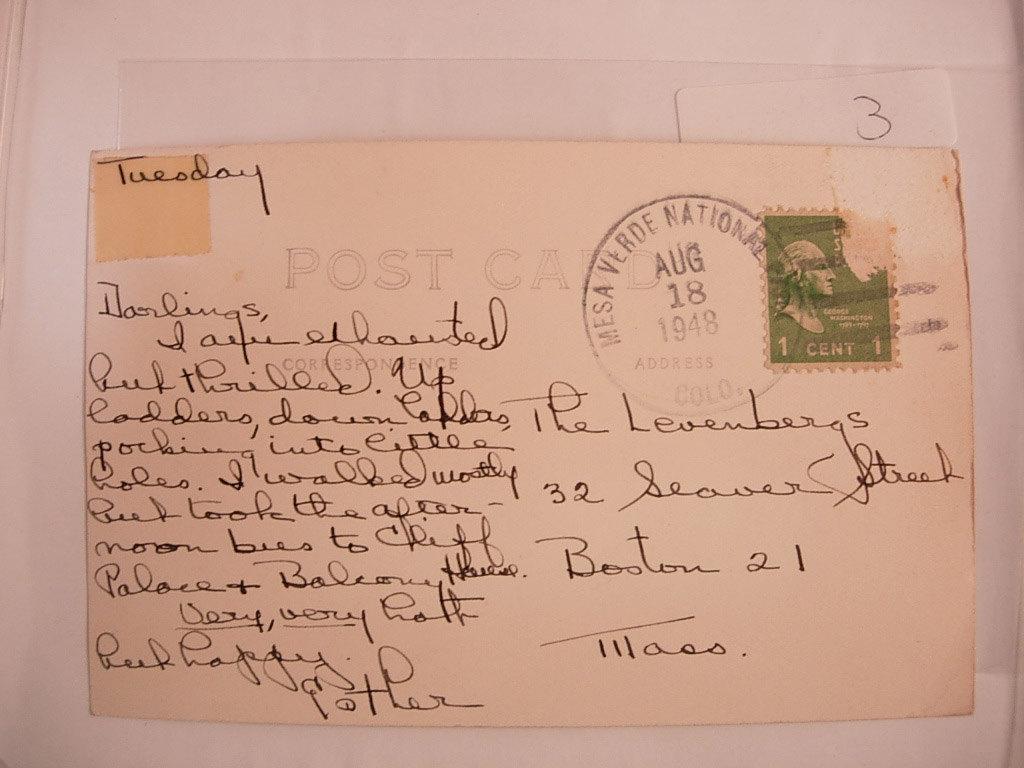 3
Tuesday
POST CARD
MESA VERDE NATIONAL
AUG
18
1948
COLO.
GEORGE
WASHINGTON
1 CENT 1
CORRESPONDENCE
ADDRESS
Darlings,
I am exhausted
but thrilled. Up
ladders, down ladders,
pocking into little
holes. I walked mostly
but took the after-
noon bus to Cliff
Palace + Balcony House.
Very, very hott
but happy.
The Levenbergs
32 Seaver Street
Boston 21
Mass.